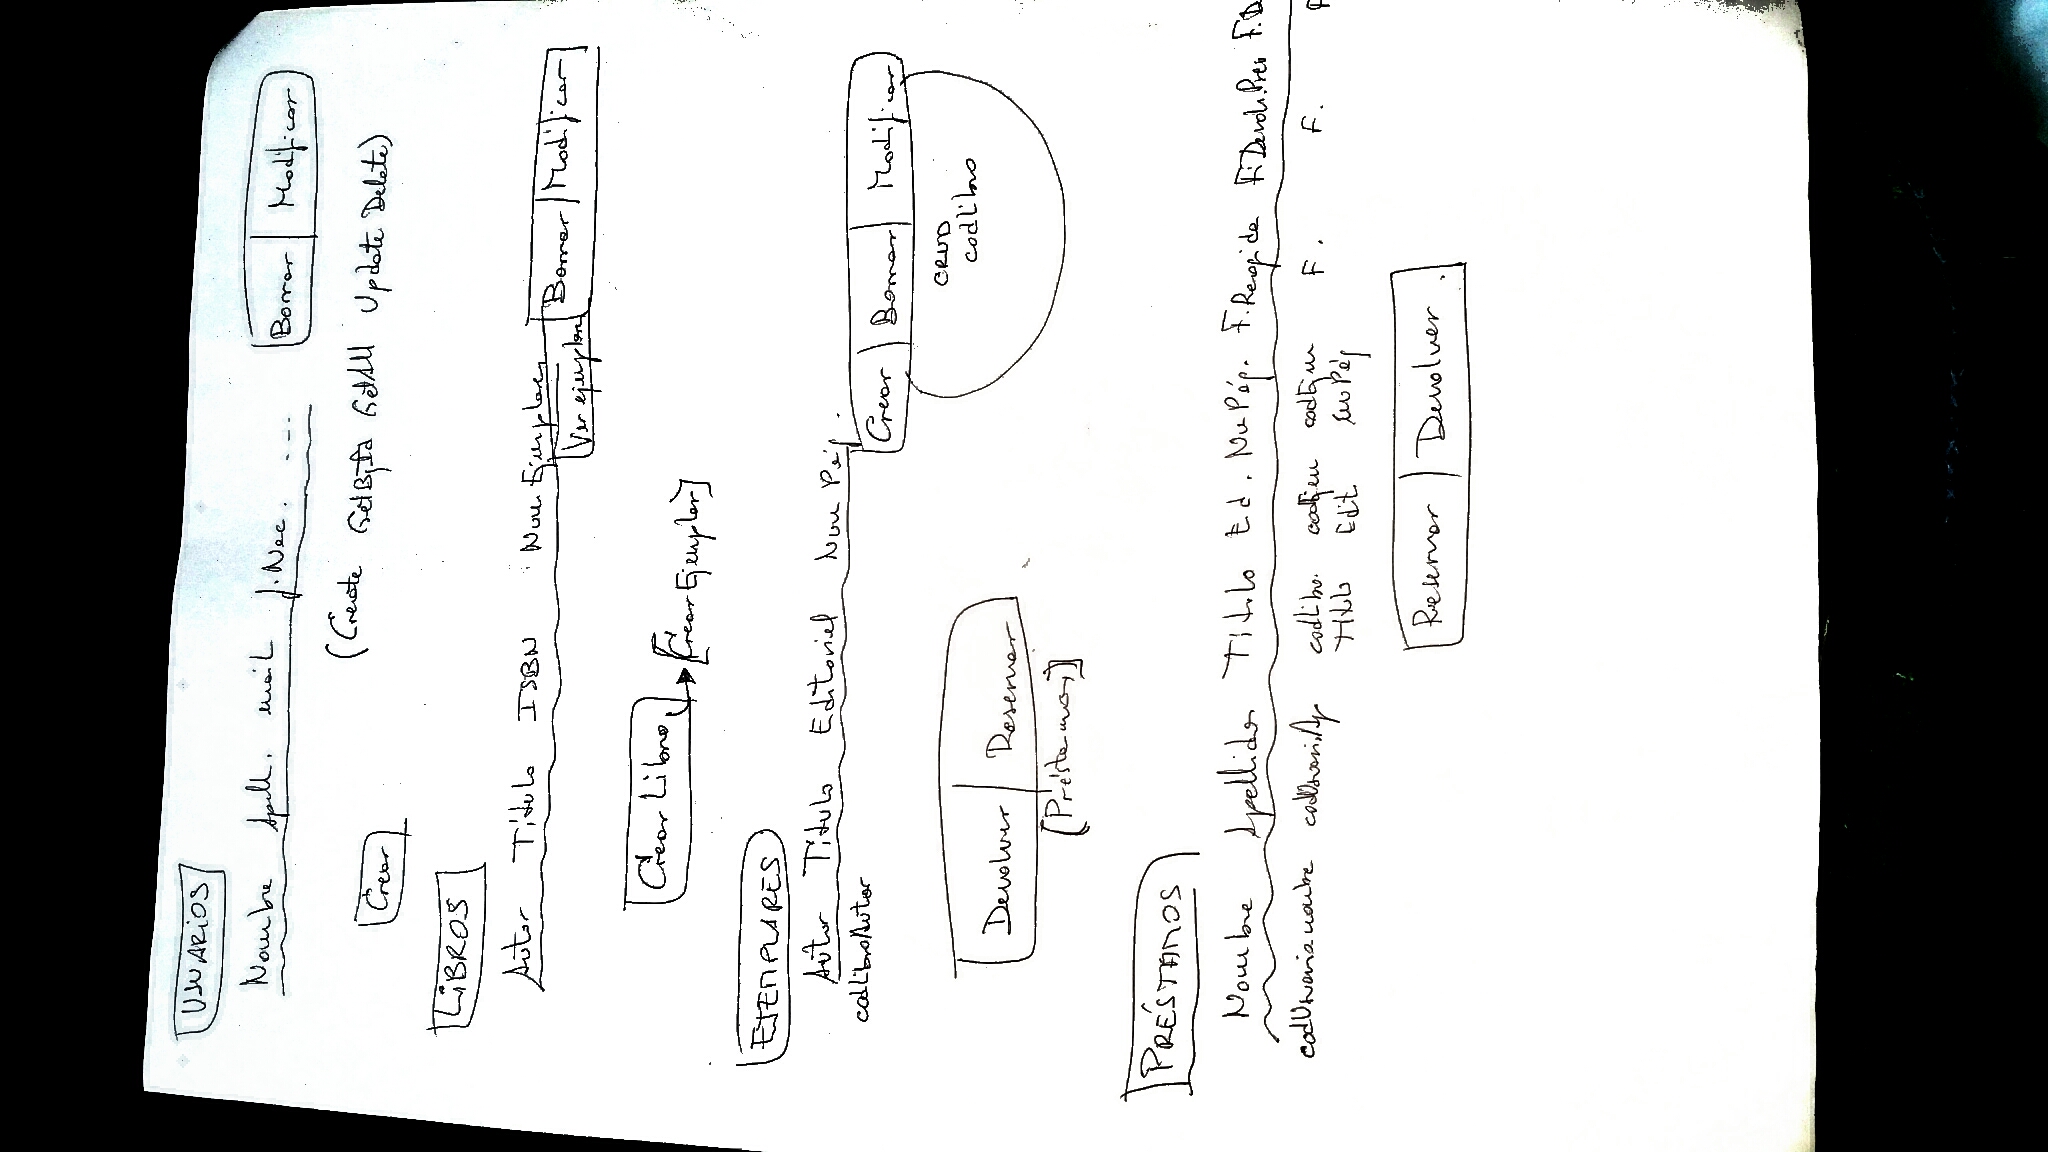 USUARIOS
Nombre Apell. mail f.Nac. ...
Borrar Modificar
(Create GetById GetAll Update Delete)
Crear
LIBROS
Autor Título ISBN Num Ejemplares
Ver ejemplares Borrar Modificar
Crear Libro
[Crear Ejemplar]
EJEMPLARES
Autor Título Editorial Num Pág.
codLibro/Autor
Crear Borrar Modificar
CRUD
codLibro
Devolver Reservar
[Préstamos]
PRÉSTAMOS
Nombre Apellidos Título Ed. Nu Pág. F.Recogida F.Devol.Prev F.D
codUsuario.nombre codUsuari.Ap codLibro. codEjem codEjem F. F. F
Título Edit. NuPág
Reservar Devolver.